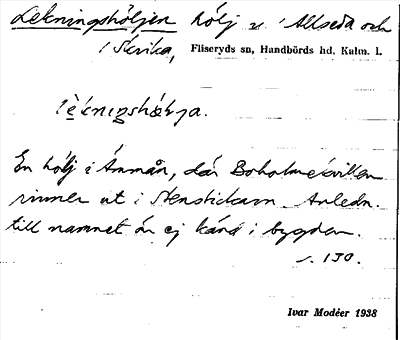 Lekningshöljen hölj v. i Allseda och
i Skrika, Fliseryds sn, Handbörds hd, Kalm. l.
En hölj i Ämmån, där Boholmskvillen
rinner ut i Anledn.
till namnet är ej känd i bygden.
s. 130.
Ivar Modéer 1938